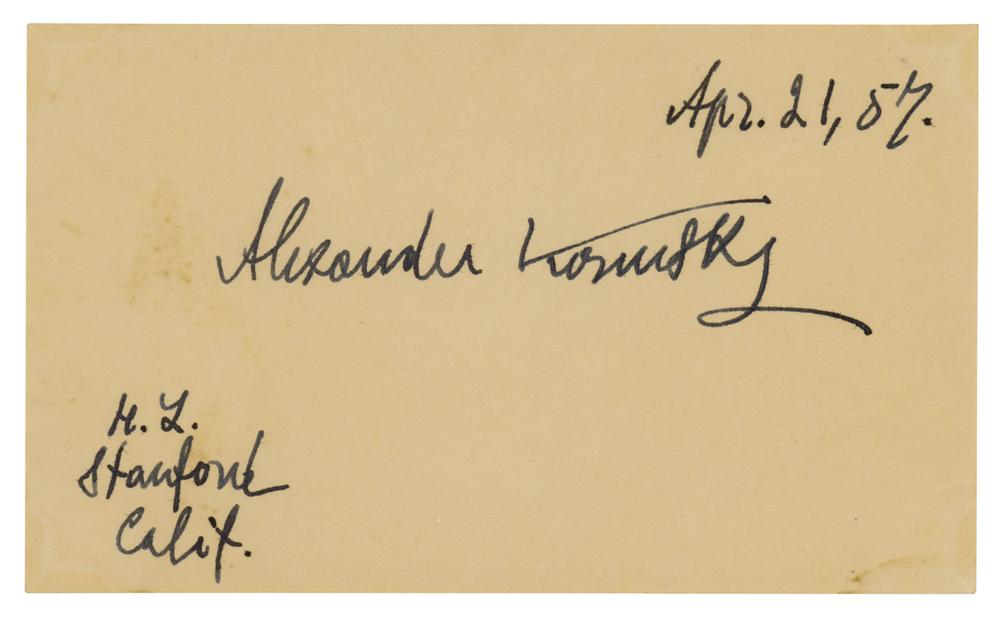 Apr. 21, 57.
Alexander Kerensky
H. L.
Stanford
Calif.